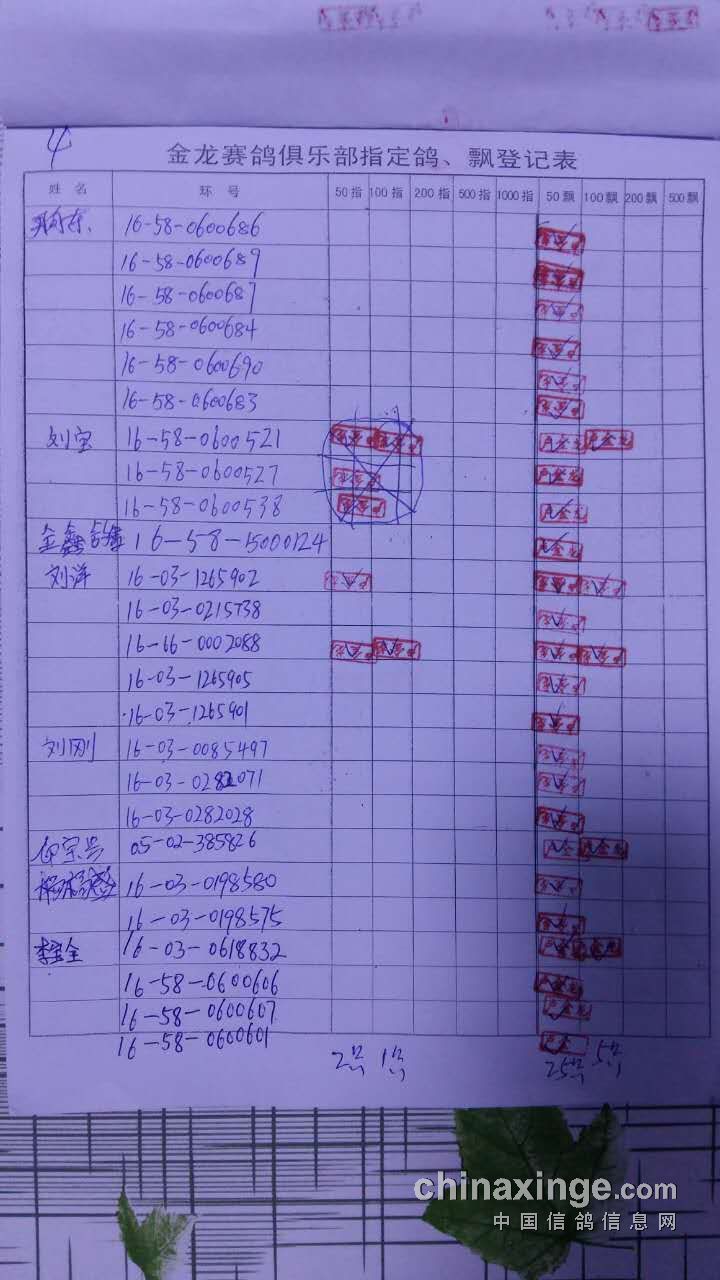 4
金龙赛鸽俱乐部指定鸽、飘登记表
姓 名 环 号 50指 100指 200指 500指 1000指 50飘 100飘 200飘 500飘
16-58-0600686
16-58-0600689
16-58-0600687
16-58-0600684
16-58-0600690
16-58-0600683
刘宝 16-58-0600521
16-58-0600527
16-58-0600538
金鑫 16-58-5000124
刘洋 16-03-1265902
16-03-0215738
16-66-0002088
16-03-1265905
16-03-1265901
刘刚 16-03-0085497
16-03-0282071
16-03-0282028
05-02-385826
16-03-0198580
16-03-0198575
李宝全 16-03-0618832
16-58-0600606
16-58-0600607
16-58-0600601
2 1 25 5
chinaxinge.com
中国信鸽信息网